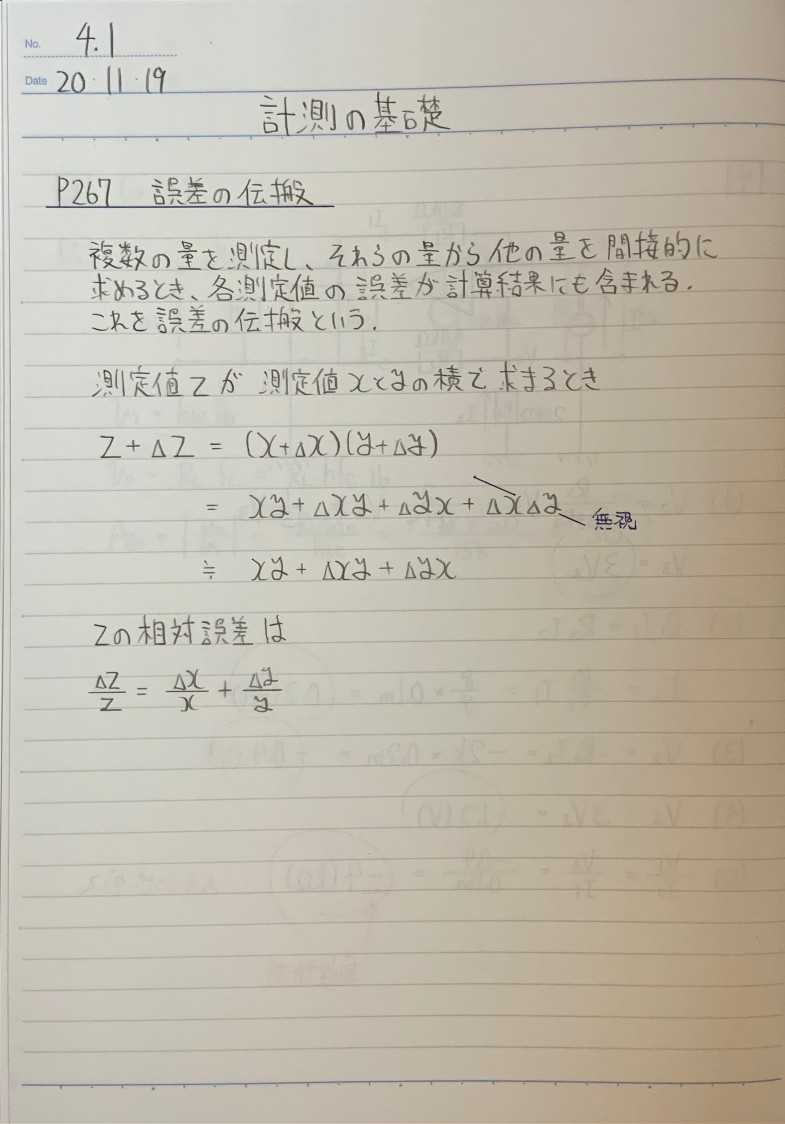 No. 4.1
Date 20・11・19
計測の基礎
P267 誤差の伝搬
複数の量を測定し、それらの量から他の量を間接的に
求めるとき、各測定値の誤差が計算結果にも含まれる.
これを誤差の伝搬という.
測定値Zが 測定値xとyの積で求まるとき
Z + ΔZ = (x+Δx)(y+Δy)
= xy + Δxy + Δyx + ΔxΔy 無視
≒ xy + Δxy + Δyx
Zの相対誤差は
ΔZ/Z = Δx/x + Δy/y